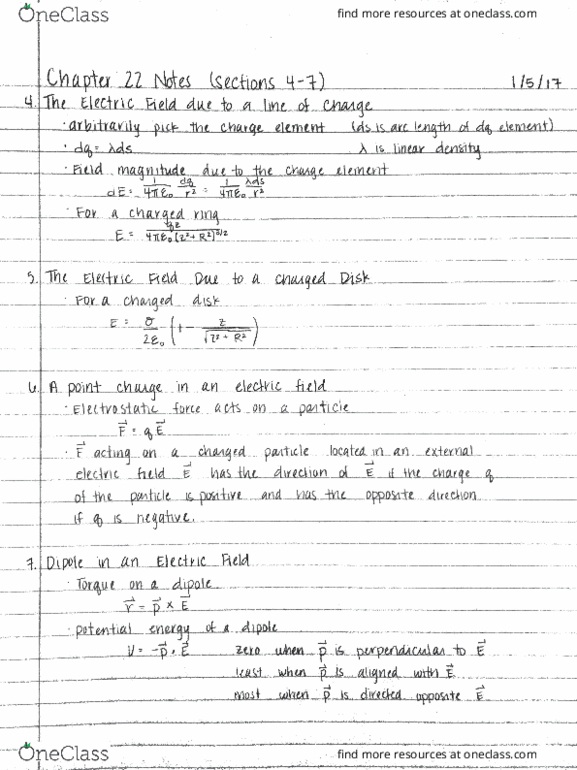 OneClass find more resources at oneclass.com
Chapter 22 Notes (sections 4-7) 1/5/17
4. The Electric Field due to a line of Charge
· arbitrarily pick the charge element (ds is arc length of dq element)
· dq = λds λ is linear density
· Field magnitude due to the charge element
dE = 1/4πε₀ dq/r² = 1/4πε₀ λds/r²
· For a charged ring
E = qz/4πε₀(z²+R²)^3/2
5. The Electric Field Due to a Charged Disk
· For a charged disk
E = σ/2ε₀ (1 - z/√z²+R²)
6. A point charge in an electric field
· Electrostatic force acts on a particle
F⃗ = qE⃗
· F⃗ acting on a charged particle located in an external
electric field E⃗ has the direction of E⃗ if the charge q
of the particle is positive and has the opposite direction
if q is negative.
7. Dipole in an Electric Field
· Torque on a dipole
τ⃗ = p⃗ × E⃗
· potential energy of a dipole
U = -p⃗ · E⃗ zero when p⃗ is perpendicular to E⃗
least when p⃗ is aligned with E⃗
most when p⃗ is directed opposite E⃗
OneClass find more resources at oneclass.com